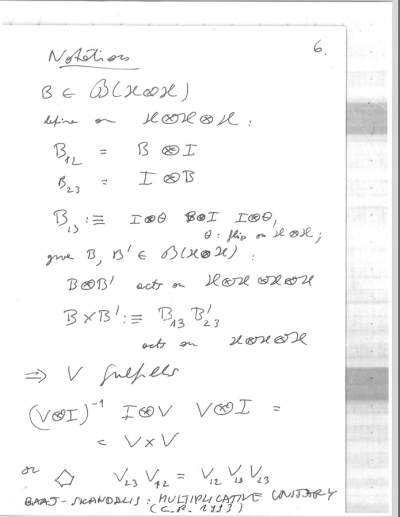 6.
Notations
B ∈ B(H⊗H)
define on H⊗H⊗H :
B₁₂ = B ⊗ I
B₂₃ = I ⊗ B
B₁₃ :≡ I⊗θ B⊗I I⊗θ,
θ: flip on H⊗H;
given B, B' ∈ B(H⊗H) :
B⊗B' acts on H⊗H⊗H⊗H
B×B' :≡ B₁₃ B'₂₃
acts on H⊗H⊗H
⇒ V fulfills
(V⊗I)⁻¹ I⊗V V⊗I =
= V×V
or ☆ V₂₃ V₁₂ = V₁₂ V₁₃ V₂₃
BAAJ-SKANDALIS: MULTIPLICATIVE UNITARY